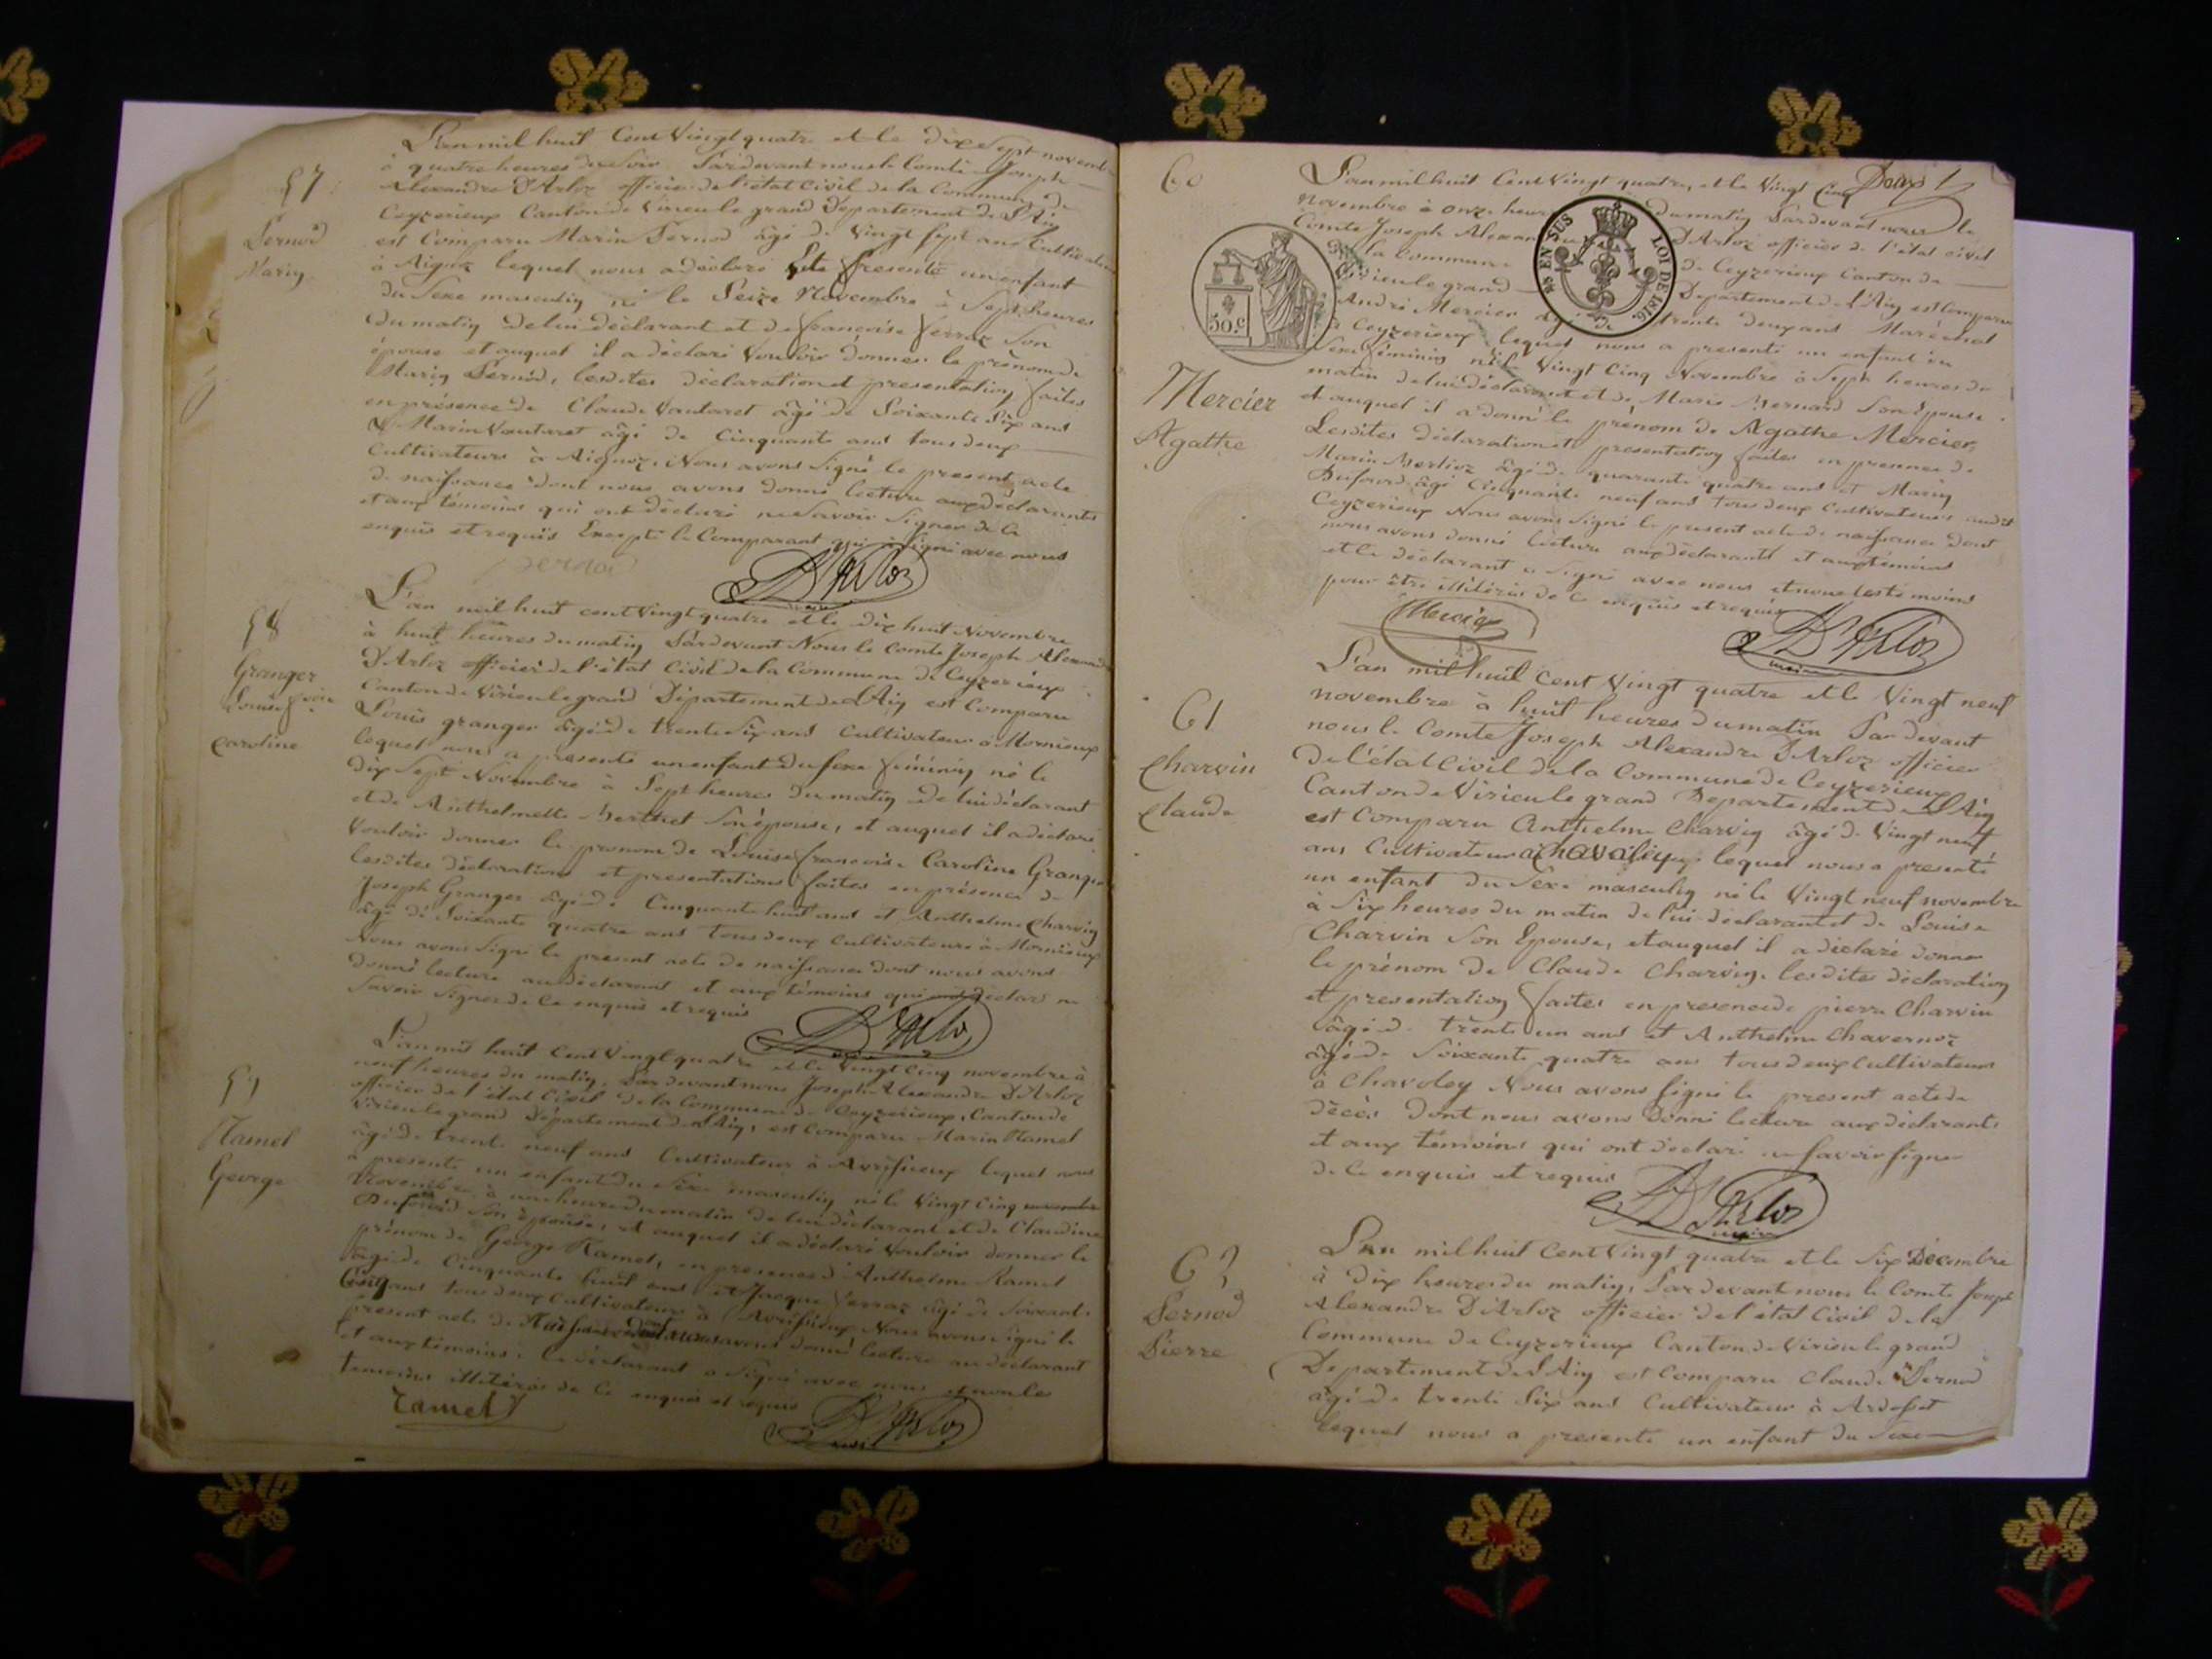 57
Pernod
Marin
L'an mil huit Cent Vingt quatre et le dix Sept novemb
à quatre heures du Soir Pardevant nous le Comte Joseph
Alexandre D'Arloz officier de l'état Civil de la Commune de
Ceyzerieux Canton de Virieu le grand Département de L'Ain
est Comparu Marin Pernod âgé de Vingt Sept ans Cultivateur
à Aignoz lequel nous a déclaré présenté un enfant
du Sexe masculin né le Seize Novembre à Sept heures
du matin de lui déclarant et de françoise ferraz Son
épouse et auquel il a déclaré Vouloir donner le prénom de
Marin Pernod, lesdites déclaration et présentation faites
en présence de Claude Vantaret âgé de Soixante Six ans
& Marin Vantaret âgé de Cinquante ans tous deux
Cultivateurs à Aignoz. Nous avons Signé le présent acte
de naissance dont nous avons donné lecture aux déclarants
et aux témoins qui ont déclaré ne Savoir Signer de ce
enquis et requis Excepté le Comparant qui a Signé avec nous
pernod
D'Arloz
maire
58
Granger
Louise
Caroline
L'an mil huit cent Vingt quatre et le dix huit Novembre
à huit heures du matin Pardevant Nous le Comte Joseph Alexandre
D'Arloz officier de l'état Civil de la Commune de Ceyzerieux
Canton de Virieu le grand Département de L'Ain est Comparu
Louis granger âgé de trente Six ans Cultivateur à Mornieux
lequel nous a présenté un enfant du Sexe féminin né le
dix Sept Novembre à Sept heures du matin de lui déclarant
et de Anthelmette Berthet Son épouse, et auquel il a déclaré
Vouloir donner le prenom de Louise françoise Caroline Granger
lesdites déclarations et presentations faites en présence de
Joseph Granger âgé de Cinquante huit ans et Anthelme Charvin
âgé de Soixante quatre ans tous deux Cultivateurs à Mornieux
Nous avons Signé le présent acte de naissance dont nous avons
donné lecture au déclarant et aux témoins qui ont déclaré ne
Savoir Signer de Ce enquis et requis
D'Arloz
maire
59
Ramel
George
L'an mil huit Cent Vingt quatre et le Vingt Cinq novembre à
neuf heures du matin, Pardevant nous Joseph Alexandre D'Arloz
officier de l'état Civil de la Commune de Ceyzerieux, Canton de
Virieu le grand Département de L'Ain, est Comparu Marin Ramel
âgé de trente neuf ans Cultivateur à Avrissieux lequel nous
a présenté un enfant du Sexe masculin né le Vingt Cinq
Novembre à une heure du matin de lui déclarant et de Claudine
Dufourd Son épouse, et auquel il a déclaré Vouloir donner le
prénom de George Ramel, en présence d'Anthelme Ramel
âgé de Cinquante huit ans et Jacque ferraz âgé de Soixante
Cinq ans tous deux Cultivateurs à Avrissieux Nous avons Signé le
présent acte de Naissance dont nous avons donné lecture au déclarant
et aux témoins. Le déclarant a Signé avec nous et non les
temoins illitérés de Ce enquis et requis
ramel
D'Arloz
maire
60
Mercier
Agathe
50.c
EN SUS LOI DE 1816.
L'an mil huit Cent Vingt quatre, et le Vingt Cinq
Novembre à onze heures du matin Pardevant nous le
Comte Joseph Alexandre D'Arloz officier de l'état civil
de la Commune de Ceyzerieux Canton de
Virieu le grand Département de L'Ain est Comparu
André Mercier âgé de trente deux ans Maréchal
à Ceyzerieux lequel nous a présenté un enfant du
Sexe féminin né le Vingt Cinq Novembre à Sept heures du
matin de lui déclarant et de Marie Bernard Son épouse.
et auquel il a donné le prénom de Agathe Mercier,
Lesdites déclaration et présentation faites en présence de
Marin Berlioz âgé de quarante quatre ans et Marin
Dufourd âgé Cinquante neuf ans tous deux Cultivateurs audit
Ceyzerieux Nous avons Signé le présent acte de naissance dont
nous avons donné lecture aux déclarants et aux témoins
et le déclarant a Signé avec nous et non les témoins
pour être illitérés de Ce enquis et requis
Mercier
D'Arloz
maire
61
Charvin
Claude
L'an mil huit Cent Vingt quatre et le Vingt neuf
novembre à huit heures du matin Par devant
nous le Comte Joseph Alexandre D'Arloz officier
De l'état Civil de la Commune de Ceyzerieux
Canton de Virieu le grand Département de L'Ain
est Comparu Anthelme Charvin âgé de Vingt neuf
ans Cultivateur à Chavoley lequel nous a présenté
un enfant du Sexe masculin né le Vingt neuf novembre
à Six heures du matin de lui déclarant et de Louise
Charvin Son Epouse, et auquel il a déclaré donner
le prénom de Claude Charvin, lesdites déclaration
et présentation faites en presence de pierre Charvin
âgé de trente un ans et Anthelme Chavernoz
âgé de Soixante quatre ans tous deux Cultivateurs
à Chavoley Nous avons Signé le present acte de
décès dont nous avons donné lecture aux déclarants
et aux témoins qui ont déclaré ne Savoir Signer
de Ce enquis et requis
D'Arloz
maire
62
Pernod
Pierre
L'an mil huit Cent Vingt quatre et le Six Décembre
à Dix heures du matin, Pardevant nous le Comte Joseph
Alexandre D'Arloz officier de l'état Civil de la
Commune de Ceyzerieux Canton de Virieu le grand
Département de L'Ain est Comparu Claude Pernod
âgé de trente Six ans Cultivateur à Ardosset
lequel nous a présenté un enfant du Sexe